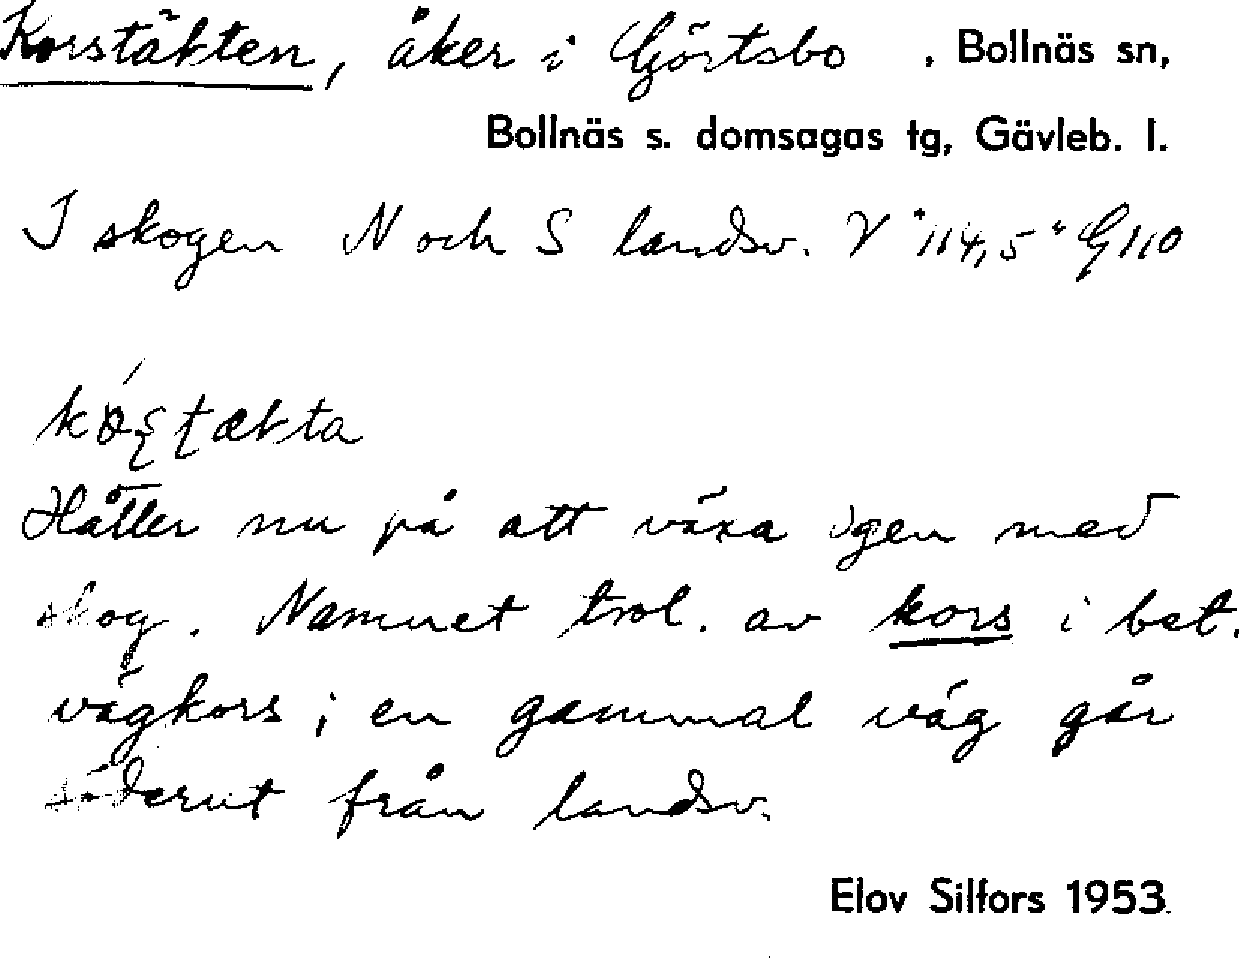 Korstäkten, åker i Görtsbo, Bollnäs sn,
Bollnäs s. domsagas tg, Gävleb. l.
I skogen N och S landsv. V "114,5" G 110
Håller nu på att växa igen med
skog. Namnet trol. av kors i bet.
vägkors; en gammal väg går
söderut från landsv.
Elov Silfors 1953.